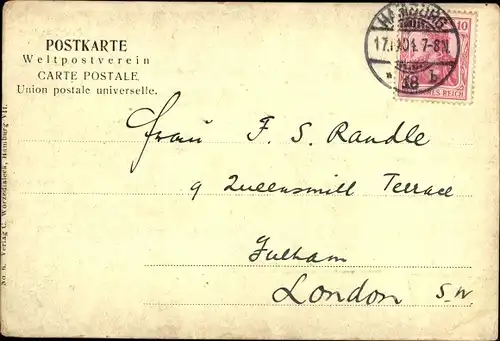 POSTKARTE
Weltpostverein
CARTE POSTALE
Union postale universelle.
No. 8. Verlag C. Worzedialeck, Hamburg VII.
HAMBURG
7-8N.
10
REICH
Frau F. S. Randle
9 Queensmill Terrace
Fulham
London S.W